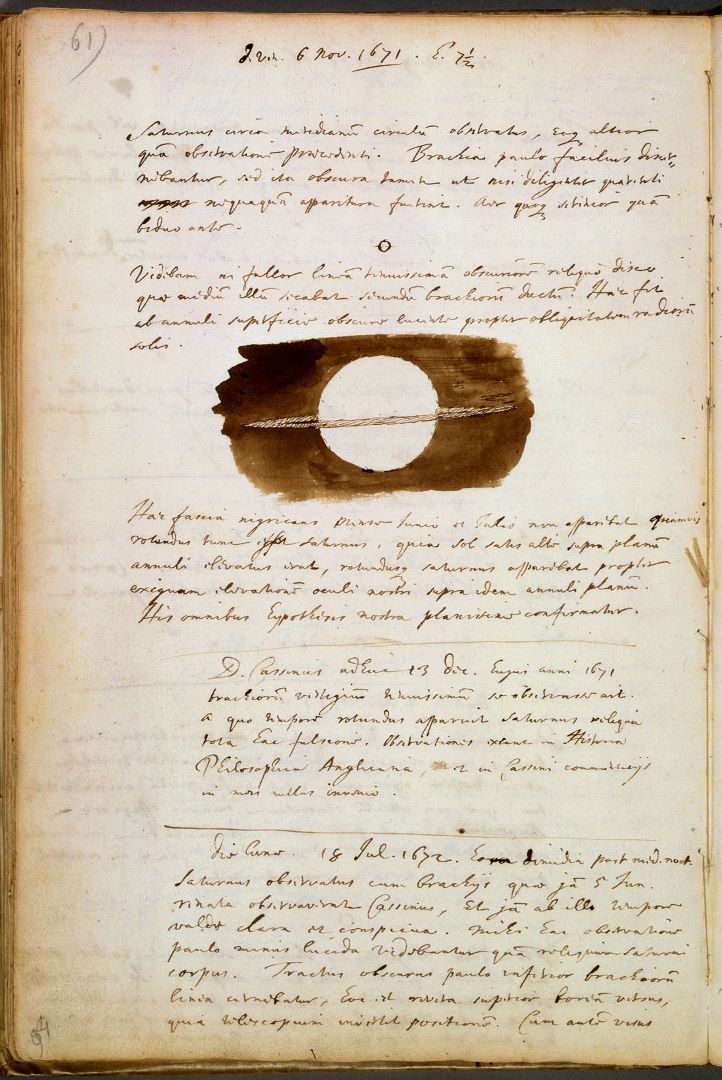 61)
d. ven. 6 Nov. 1671. h. 7 1/2.
Saturnus circa meridianū circulū observatus, Eoq altior
quā observatione praecedenti. Brachia paulo facilius discer-
nebantur, sed ita obscura tamen ut nisi diligenter quaesiti
nequaquā apparitura fuerint. Aer quoq serenior quā
biduo ante.
Videbam ni fallor lineā tenuissimā obscuriorē reliquo disco
quae mediū illū secabat secundū brachiorū ductū. Haec fit
ab annuli superficie obscure lucente propter obliquitatem radiorū
solis.
Haec fascia nigricans mense Junio et Julio non apparebat quamvis
rotundus tunc esset Saturnus, quia sol satis alte supra planū
annuli elevatus erat, rotundusq saturnus apparebat propter
exiguam elevationē oculi nostri supra idem annuli planū.
His omnibus hypothesis nostra planissime confirmatur.
D. Cassinus adhuc 13 dec. hujus anni 1671
brachiorū vestigiū tenuissimū se observasse ait.
a quo tempore rotundus apparuit Saturnus reliqua
tota hac . observationes extant in Historia
Philosophica Anglicana, et in Cassini commentarijs
in mors nullas invenio.
die Lunae. 18 Jul. 1672. dimidia post med. noct.
Saturnus observatus cum brachijs quae jā 5 Jun.
renata observaverat Cassinus, Et jā ab illo tempore
valde clara et conspicua. mihi hac observatione
paulo minus lucida videbantur quā reliquum Saturni
corpus. Tractus obscurus paulo inferior brachiorū
linea cernebatur, hoc est revera superior boreā versus,
quia telescopium invertit positionē. Cum autē visus
94